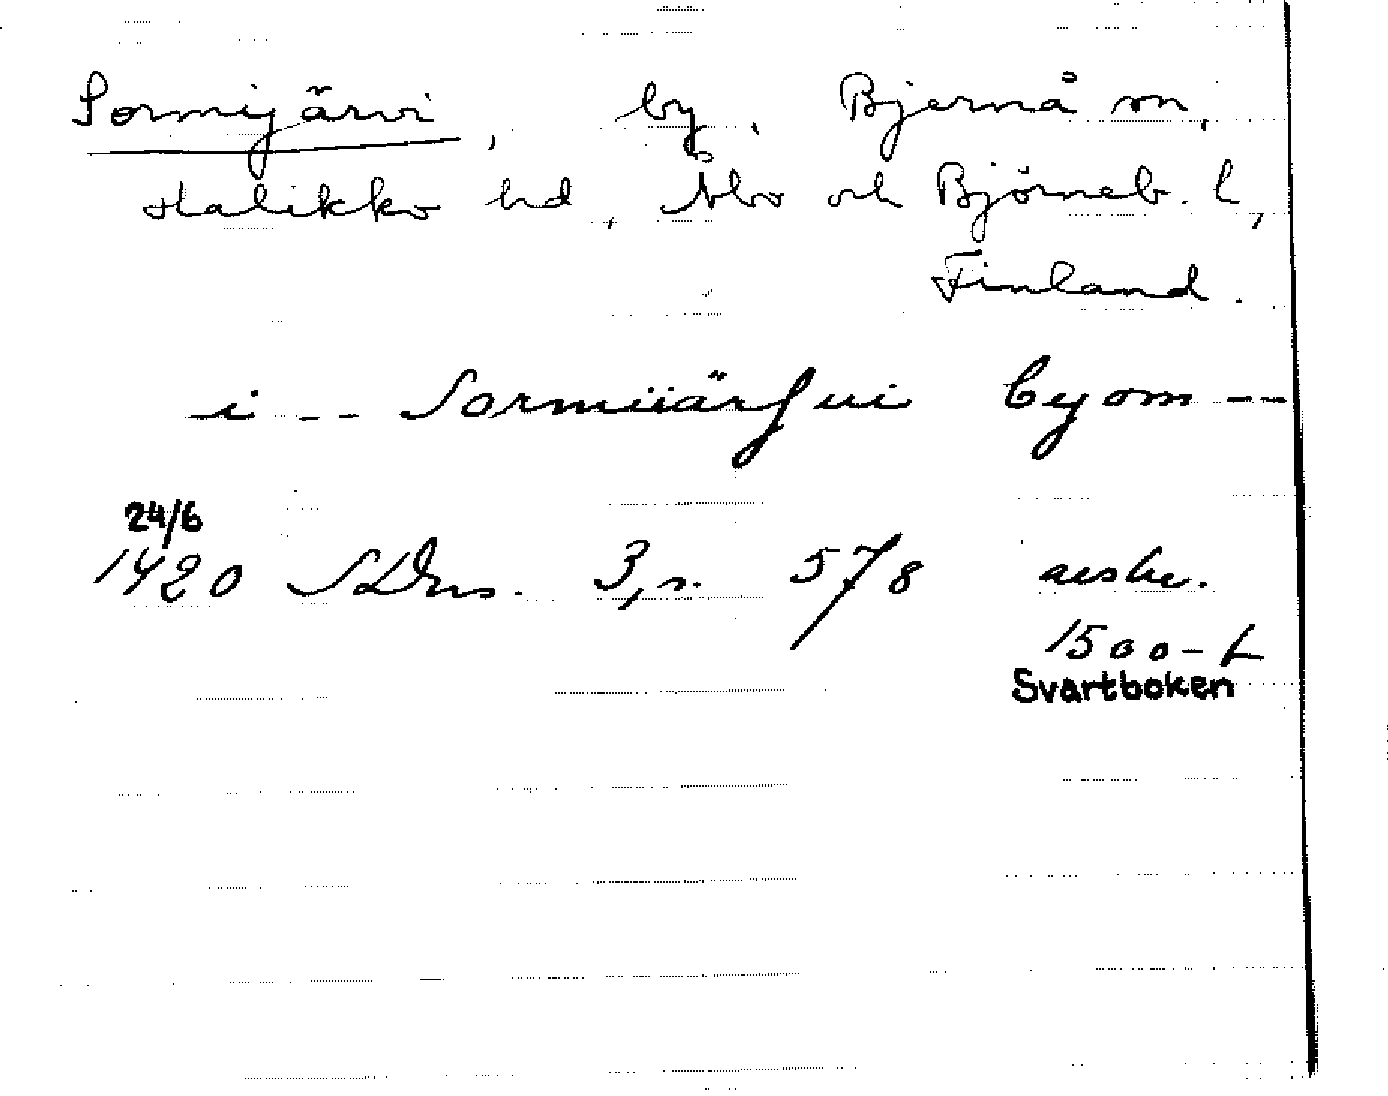 Sormijärvi, by, Bjernå sn,
Halikko hd, Åbo och Björneb. l,
Finland.
i -- Sormiiärfui byom --
24/6
1420 SDns. 3, s. 578 avskr.
1500-t
Svartboken